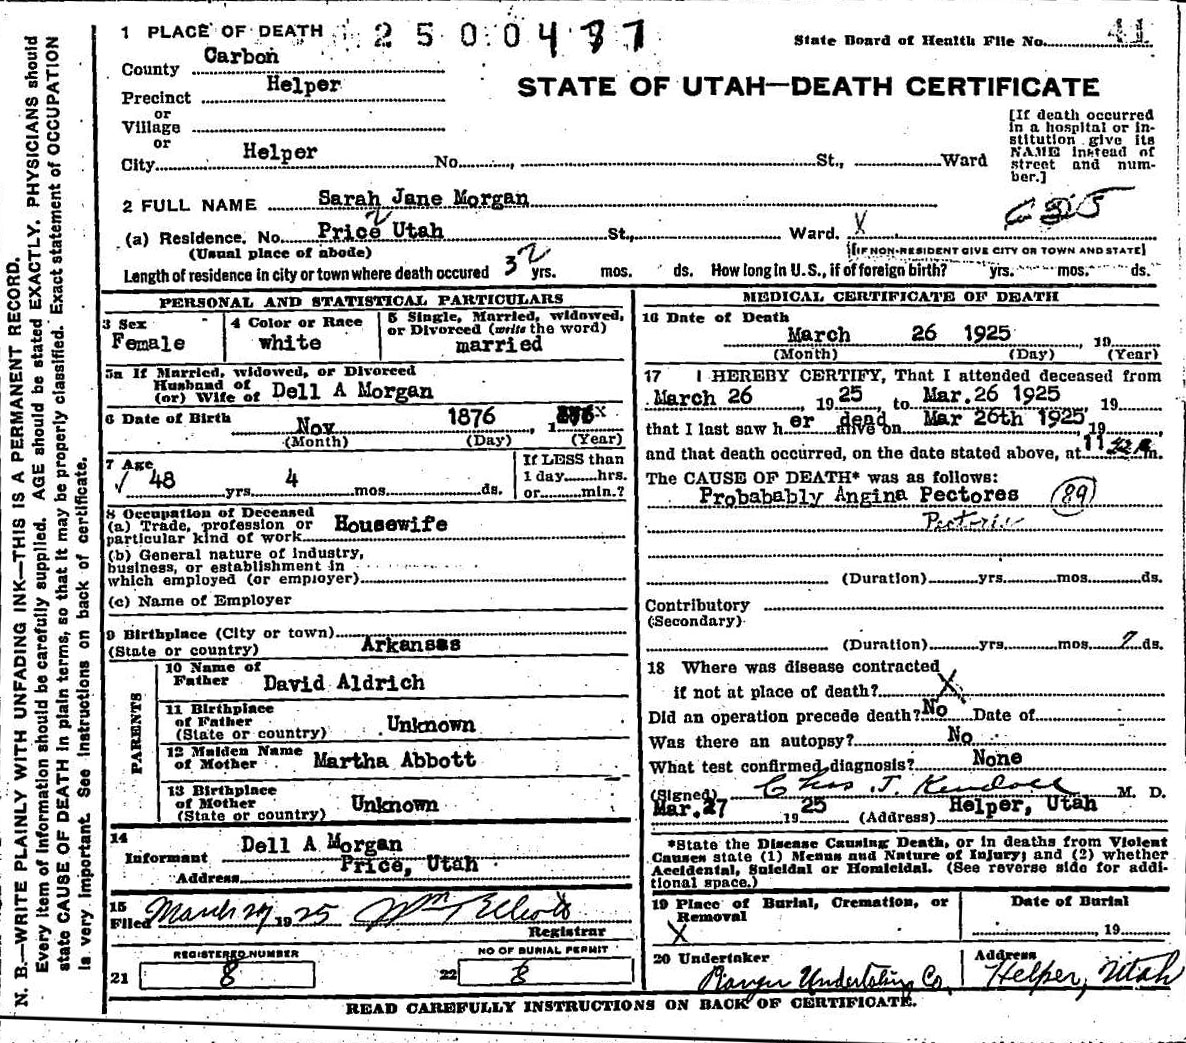 N. B.—WRITE PLAINLY WITH UNFADING INK—THIS IS A PERMANENT RECORD.
Every item of information should be carefully supplied. AGE should be stated EXACTLY. PHYSICIANS should
state CAUSE OF DEATH in plain terms, so that it may be properly classified. Exact statement of OCCUPATION
is very important. See instructions on back of certificate.
1 PLACE OF DEATH
County Carbon
Precinct Helper
or
Village
or
City Helper No. St., Ward
State Board of Health File No. 41
STATE OF UTAH—DEATH CERTIFICATE
[If death occurred
in a hospital or in-
stitution give its
NAME instead of
street and num-
ber.]
2 FULL NAME Sarah Jane Morgan
(a) Residence. No. Price Utah St., Ward. X
(Usual place of abode) [(IF NON-RESIDENT GIVE CITY OR TOWN AND STATE]
Length of residence in city or town where death occured yrs. mos. ds. How long in U.S., if of foreign birth? yrs. mos. ds.
PERSONAL AND STATISTICAL PARTICULARS
3 Sex
Female
4 Color or Race
white
5 Single, Married, widowed,
or Divorced (write the word)
married
5a If Married, widowed, or Divorced
Husband of
(or) Wife of Dell A Morgan
6 Date of Birth Nov 1876, 1
(Month) (Day) (Year)
7 Age
48 yrs. 4 mos. ds.
If LESS than
1 day hrs.
or min.?
8 Occupation of Deceased
(a) Trade, profession or
particular kind of work Housewife
(b) General nature of industry,
business, or establishment in
which employed (or employer)
(c) Name of Employer
9 Birthplace (City or town)
(State or country) Arkansas
PARENTS
10 Name of
Father David Aldrich
11 Birthplace
of Father
(State or country) Unknown
12 Maiden Name
of Mother Martha Abbott
13 Birthplace
of Mother
(State or country) Unknown
14
Informant Dell A Morgan
Address Price, Utah
15
Filed March 1925 Wm Elliott
Registrar
REGISTERED NUMBER
21 8
NO OF BURIAL PERMIT
22 8
MEDICAL CERTIFICATE OF DEATH
16 Date of Death
March 26 1925, 19
(Month) (Day) (Year)
17 I HEREBY CERTIFY, That I attended deceased from
March 26, 1925, to Mar. 26 1925 19
that I last saw her dead alive on Mar 26th 1925, 19
and that death occurred, on the date stated above, at 11 m.
The CAUSE OF DEATH* was as follows:
Probabably Angina Pectores (89)
Pectoris
(Duration) yrs. mos. ds.
Contributory
(Secondary)
(Duration) yrs. mos. ? ds.
18 Where was disease contracted
if not at place of death? X
Did an operation precede death? No Date of
Was there an autopsy? No
What test confirmed diagnosis? None
(Signed) Chas. J. Kendall M. D.
Mar. 27 1925 (Address) Helper, Utah
*State the Disease Causing Death, or in deaths from Violent
Causes state (1) Means and Nature of Injury; and (2) whether
Accidental, Suicidal or Homicidal. (See reverse side for addi-
tional space.)
19 Place of Burial, Cremation, or
Removal
X
Date of Burial
19
20 Undertaker
Undertaking Co.
Address
Helper, Utah
READ CAREFULLY INSTRUCTIONS ON BACK OF CERTIFICATE.